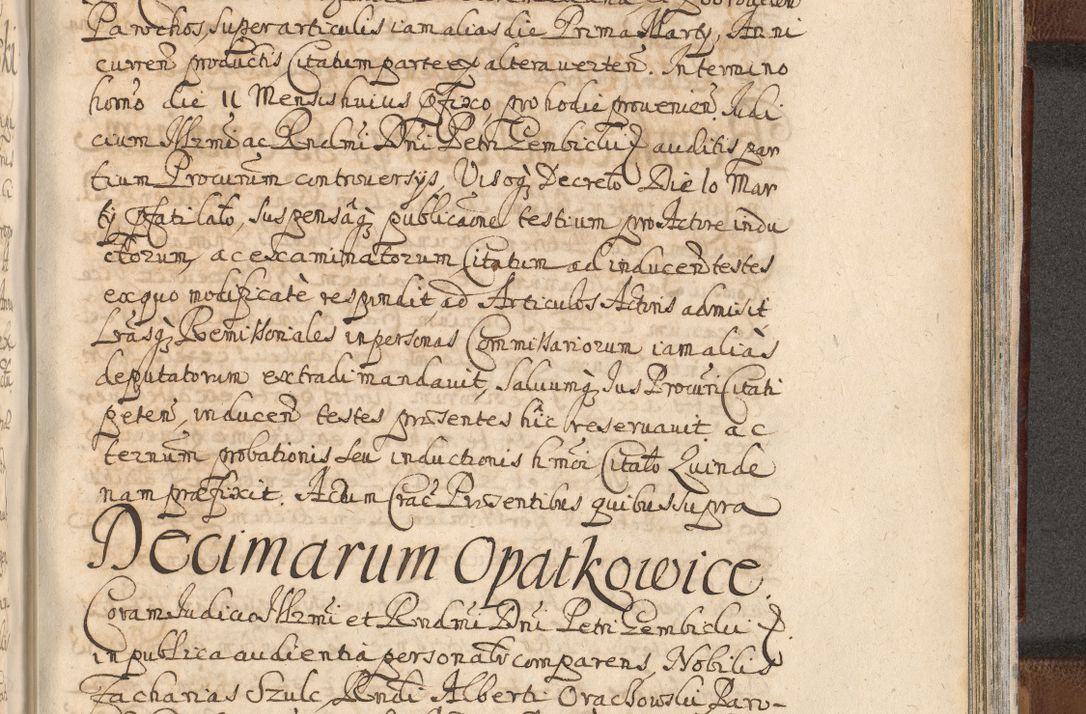 Parochos, super articulis iam alias die Prima Marty, Anni
curren̄ productis Citatum parte ex altera verten̄. In termino
homo die 11 Mensis huius pfixo, pro hodie provenien̄ Iudi
cium Illrmi ac Rndmi Dni Petri Gembicki auditis par
tium Procurum controversys, Visoq; Decreto Die 10 Mar
ty pfatilato, suspensaq; publicaone testium pro Actore indu
ctorum, ac examinatorum Citatum ad inducen̄ testes
ex quo modificatè respondit ad Articulos Actoris admisit
Lrasq; Remissoriales in personas Commissariorum iam aliàs
deputatorum extradi mandavit, salvumq; Ius Procuri Citati
peten̄, inducen̄ testes præsentes hic reservavit ac
ternum probationis seu inductionis hmoi Citato Quinde
nam præfixit. Actum Crac Præsentibus quibus supra
Decimarum Opatkowice.
Coram Iudicio Illrmi et Rndmi Dni Petri Gembicki
in publica audientia personalr comparens, Nobilis
Zacharias Szulc, Rndi Alberti Orachowski Paro-